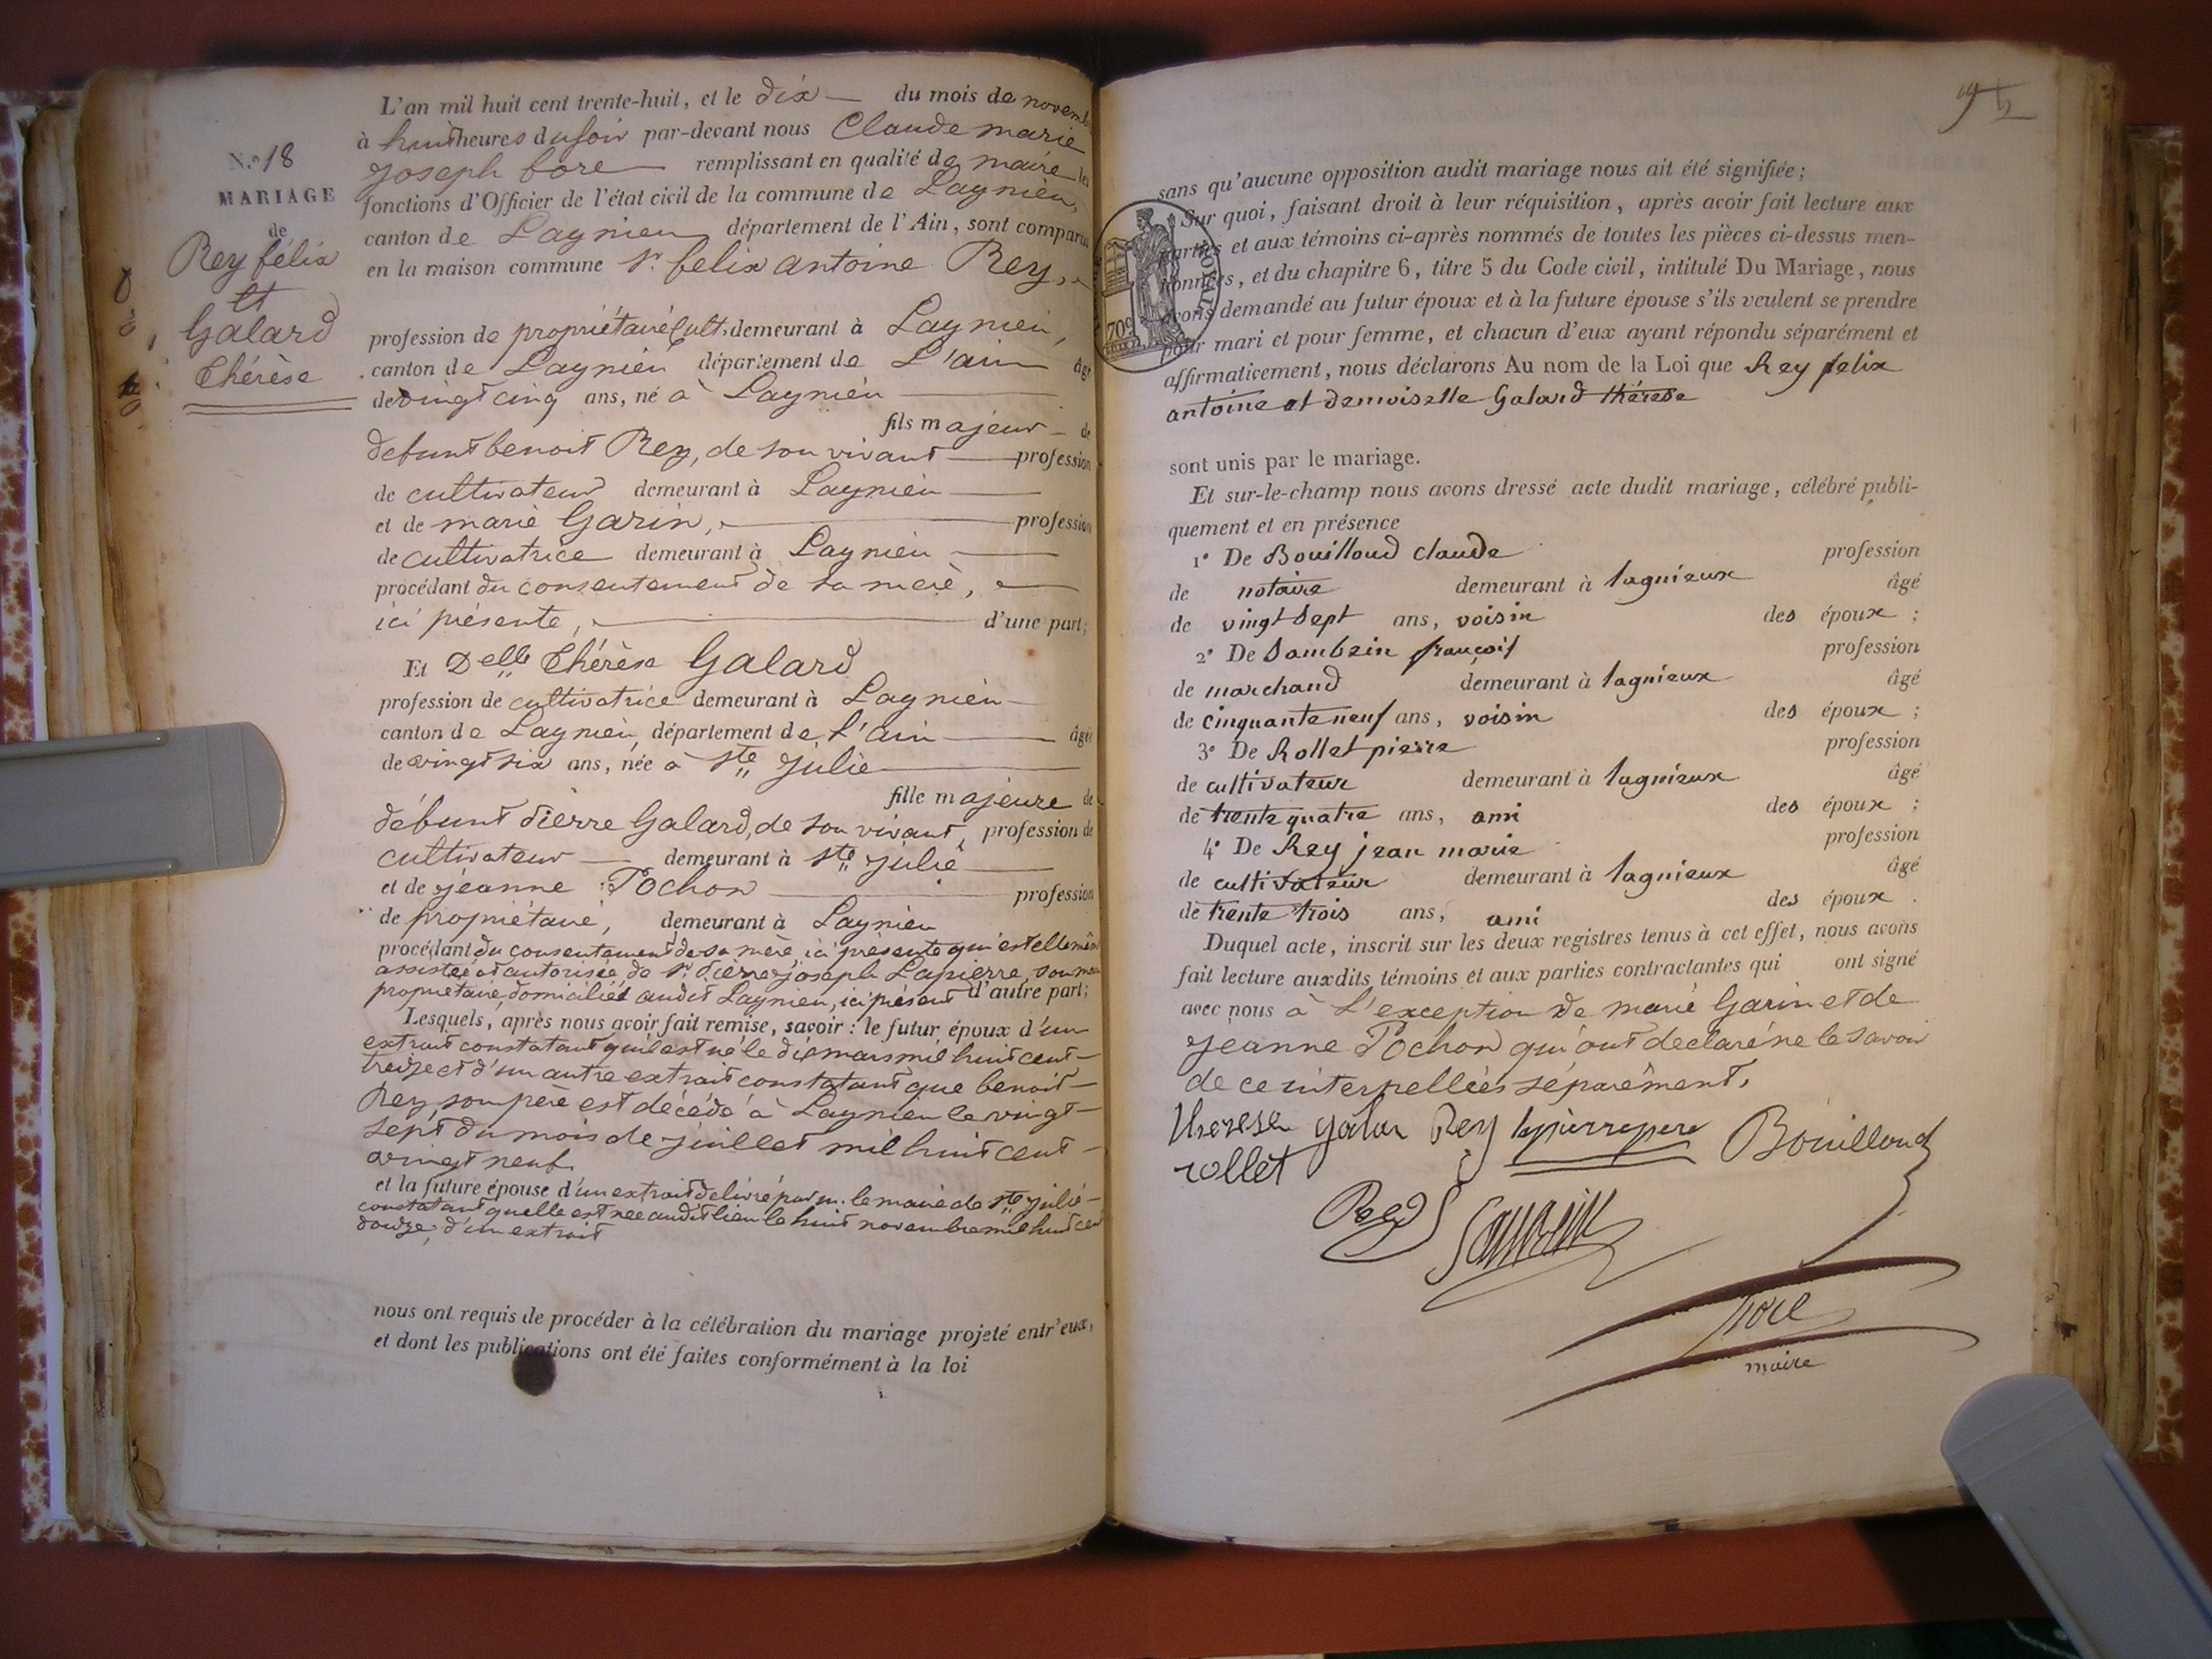 L'an mil huit cent trente-huit, et le dix du mois de novemb
à huit heures du soir par-devant nous Claude marie
joseph fore remplissant en qualité de maire les
fonctions d'Officier de l'état civil de la commune de Lagnieu,
canton de Lagnieu département de l'Ain, sont comparus
en la maison commune Sr. felix antoine Rey,
N.o 18
MARIAGE
de
Rey félix
et
Galard
thérèse
profession de propriétaire Cult. demeurant à Lagnieu,
canton de Lagnieu département de L'ain âgé
de vingt cinq ans, né à Lagnieu
fils majeur de
defunt benoit Rey, de son vivant profession
de cultivateur demeurant à Lagnieu
et de marie Garin, profession
de cultivatrice demeurant à Lagnieu
procédant du consentement de sa mere,
ici présente, d'une part;
Et Delle thérèse Galard
profession de cultivatrice demeurant à Lagnieu
canton de Lagnieu, département de l'ain âgée
de vingt six ans, née à Ste julie
fille majeure de
défunt Pierre Galard, de son vivant, profession de
cultivateur demeurant à Ste julie
et de jeanne Pochon profession
de propriétaire, demeurant à Lagnieu
procédant du consentement de sa mère, ici présente qui est elle même
assistée et autorisée de Sr. Pierre joseph Lapierre, son mari
propriétaire, domiciliés audit Lagnieu, ici présent d'autre part;
Lesquels, après nous avoir fait remise, savoir : le futur époux d'un
extrait constatant qu'il est né le dix mars mil huit cent
treize et d'un autre extrait constatant que benoit
Rey, son père est décédé à Lagnieu le vingt
sept du mois de juillet mil huit cent
vingt neuf.
et la future épouse d'un extrait delivré par m. le maire de Ste julie
constatant quelle est nee audit lieu le huit novembre mil huit cent
douze; d'un extrait
nous ont requis de procéder à la célébration du mariage projeté entr'eux,
et dont les publications ont été faites conformément à la loi
sans qu'aucune opposition audit mariage nous ait été signifiée;
Sur quoi, faisant droit à leur réquisition, après avoir fait lecture aux
parties et aux témoins ci-après nommés de toutes les pièces ci-dessus men-
ionnées, et du chapitre 6, titre 5 du Code civil, intitulé Du Mariage, nous
avons demandé au futur époux et à la future épouse s'ils veulent se prendre
pour mari et pour femme, et chacun d'eux ayant répondu séparément et
affirmativement, nous déclarons Au nom de la Loi que Rey felix
antoine et demoiselle Galard thérèse
sont unis par le mariage.
Et sur-le-champ nous avons dressé acte dudit mariage, célébré publi-
quement et en présence
1° De Bouilloud claude profession
de notaire demeurant à lagnieux âgé
de vingt sept ans, voisin des époux ;
2° De Sambein françois profession
de marchand demeurant à lagnieux âgé
de cinquante neuf ans, voisin des époux ;
3° De Rollet pierre profession
de cultivateur demeurant à lagnieux âgé
de trente quatre ans, ami des époux ;
4° De Rey jean marie profession
de cultivateur demeurant à lagnieux âgé
de trente trois ans, ami des époux .
Duquel acte, inscrit sur les deux registres tenus à cet effet, nous avons
fait lecture auxdits témoins et aux parties contractantes qui ont signé
avec nous à L'exception de marie Garin et de
jeanne Pochon qui ont declaré ne le savoir
de ce interpellées séparément.
therese galar Rey lapierre pere Bouilloud
rollet
Rey
fore
maire
709